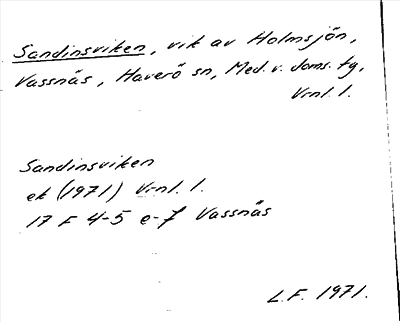 Sandinsviken, vik av Holmsjön,
Vassnäs, Haverö sn, Med. v. doms. tg,
Vrnl. l.
Sandinsviken
ek (1971) Vrnl. l.
17 F 4-5 e-f Vassnäs
L.F. 1971.